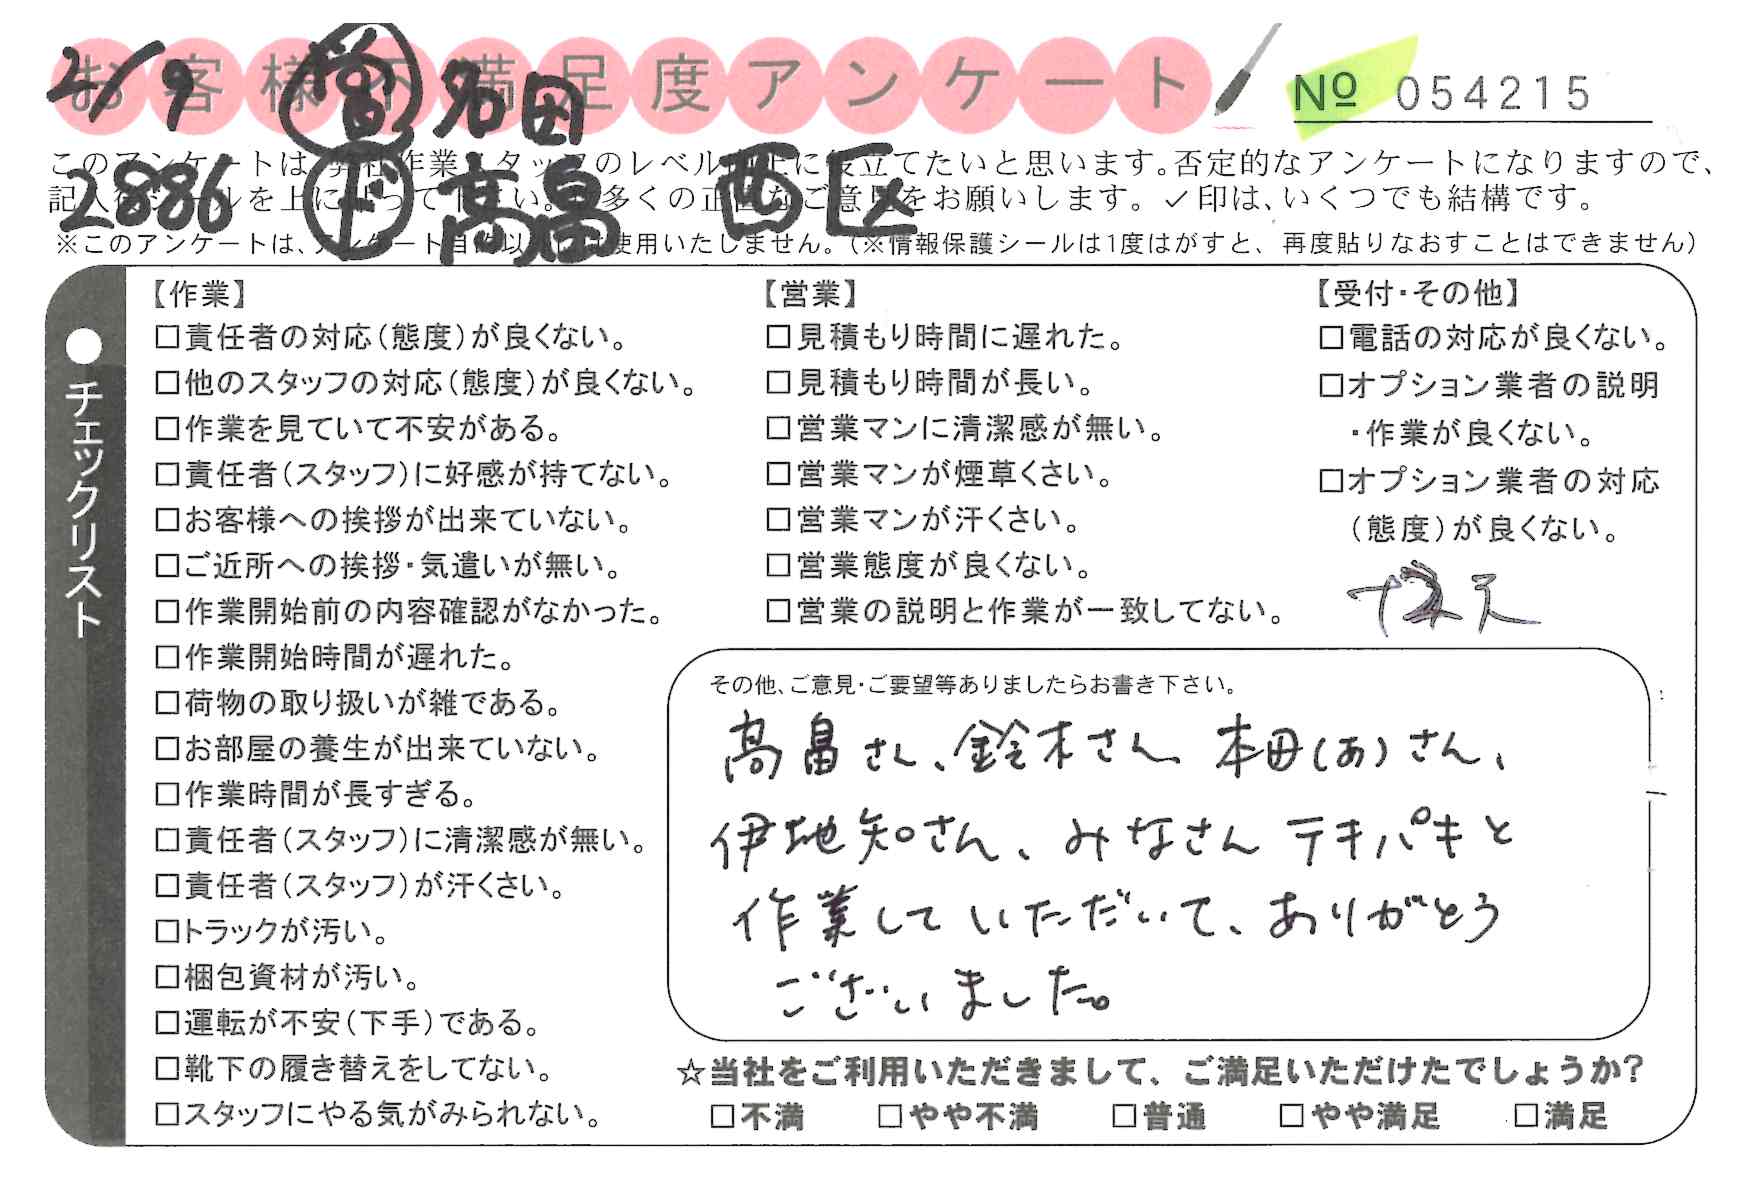 お客様不満足度アンケート
№ 054215
2/9 営 名田
2886 ド 高畠 西区
このアンケートは、弊社作業スタッフのレベル向上に役立てたいと思います。否定的なアンケートになりますので、
記入後シールを上に貼って下さい。多くの正直なご意見をお願いします。✓印は、いくつでも結構です。
※このアンケートは、アンケート目的以外には使用いたしません。（※情報保護シールは1度はがすと、再度貼りなおすことはできません）
●チェックリスト
【作業】
□責任者の対応（態度）が良くない。
□他のスタッフの対応（態度）が良くない。
□作業を見ていて不安がある。
□責任者（スタッフ）に好感が持てない。
□お客様への挨拶が出来ていない。
□ご近所への挨拶・気遣いが無い。
□作業開始前の内容確認がなかった。
□作業開始時間が遅れた。
□荷物の取り扱いが雑である。
□お部屋の養生が出来ていない。
□作業時間が長すぎる。
□責任者（スタッフ）に清潔感が無い。
□責任者（スタッフ）が汗くさい。
□トラックが汚い。
□梱包資材が汚い。
□運転が不安（下手）である。
□靴下の履き替えをしてない。
□スタッフにやる気がみられない。
【営業】
□見積もり時間に遅れた。
□見積もり時間が長い。
□営業マンに清潔感が無い。
□営業マンが煙草くさい。
□営業マンが汗くさい。
□営業態度が良くない。
□営業の説明と作業が一致してない。
【受付・その他】
□電話の対応が良くない。
□オプション業者の説明
・作業が良くない。
□オプション業者の対応
（態度）が良くない。
その他、ご意見・ご要望等ありましたらお書き下さい。
高畠さん、鈴木さん、本田(あ)さん、
伊地知さん、みなさんテキパキと
作業していただいて、ありがとう
ございました。
☆当社をご利用いただきまして、ご満足いただけたでしょうか？
□不満 □やや不満 □普通 □やや満足 □満足